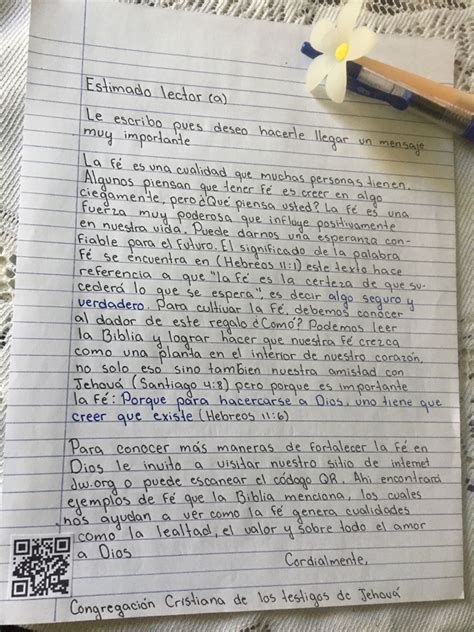 Estimado lector (a)
Le escribo pues deseo hacerle llegar un mensaje
muy importante
La fé es una cualidad que muchas personas tienen.
Algunos piensan que tener fé es creer en algo
ciegamente, pero ¿Qué piensa usted? La fé es una
fuerza muy poderosa que influye positivamente
en nuestra vida. Puede darnos una esperanza con-
fiable para el futuro. El significado de la palabra
fé se encuentra en (Hebreos 11:1) este texto hace
referencia a que "la fé es la certeza de que su-
cederá lo que se espera", es decir algo seguro y
verdadero. Para cultivar la fé, debemos conocer
al dador de este regalo ¿Como? Podemos leer
la Biblia y lograr hacer que nuestra fé crezca
como una planta en el interior de nuestro corazón,
no solo eso sino tambien nuestra amistad con
Jehová (Santiago 4:8) pero porque es importante
la fé: Porque para hacercarse a Dios, uno tiene que
creer que existe (Hebreos 11:6)
Para conocer más maneras de fortalecer la fé en
Dios le invito a visitar nuestro sitio de internet
Jw.org o puede escanear el código QR. Ahi encontrará
ejemplos de fé que la Biblia menciona, los cuales
nos ayudan a ver como la fé genera cualidades
como la lealtad, el valor y sobre todo el amor
a Dios
Cordialmente,
Congregación Cristiana de los testigos de Jehová